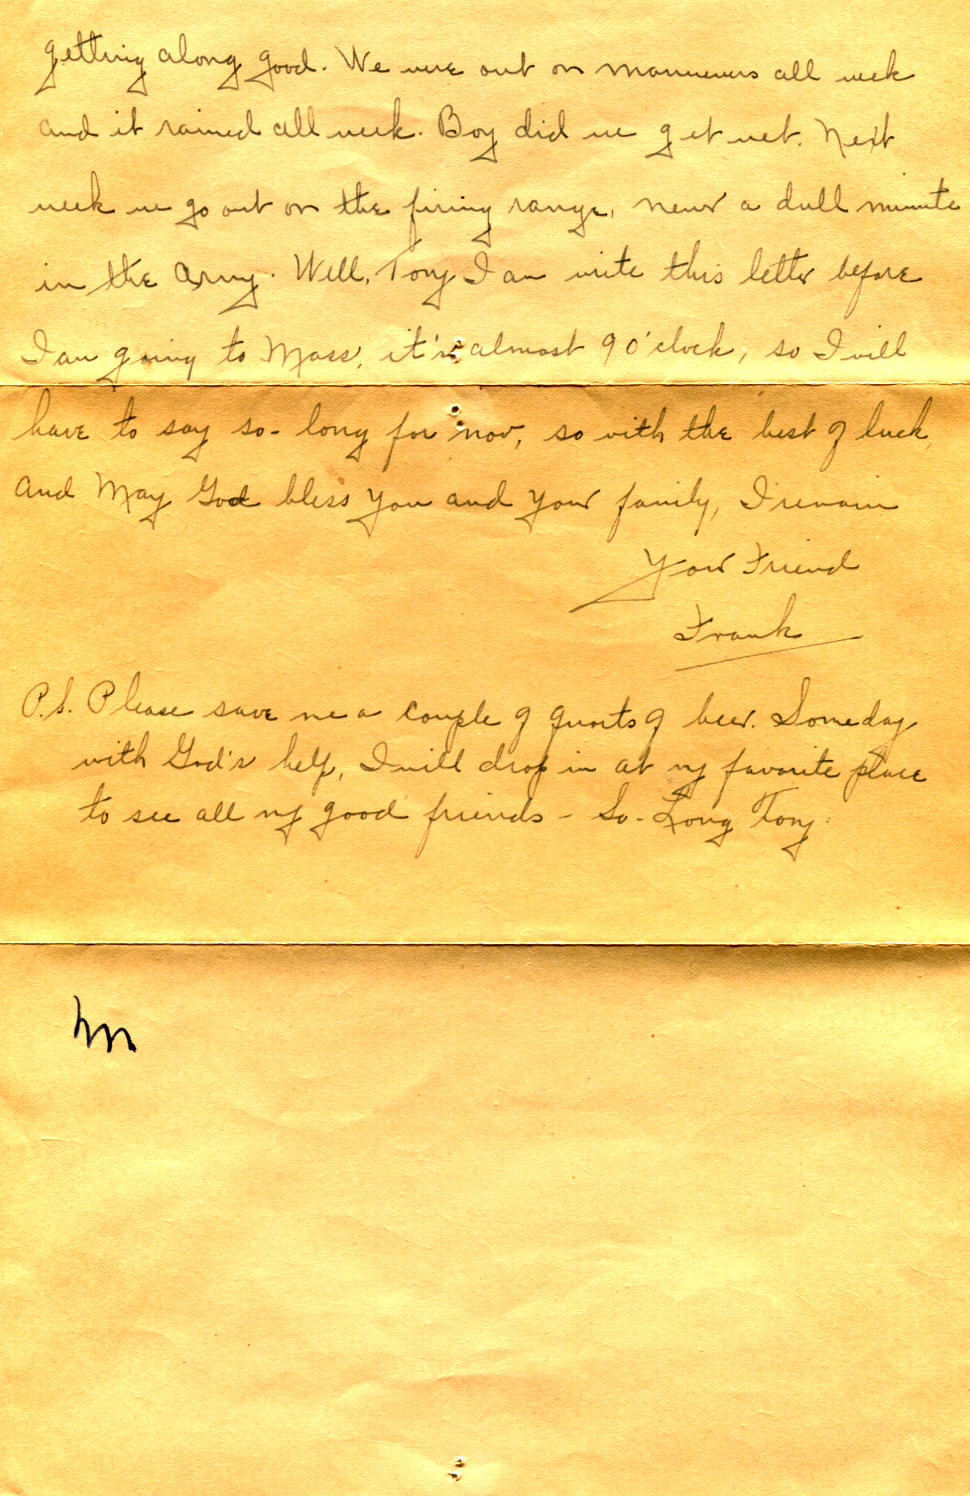 getting along good. We were out on maneuvers all week
and it rained all week. Boy did we get wet. Next
week we go out on the firing range, never a dull minute
in the Army. Well, Tony I am write this letter before
I am going to Mass, it's almost 9 o'clock, so I will
have to say so-long for now, so with the best of luck,
and May God bless you and your family, I remain
Your Friend
Frank
P.S. Please save me a couple of quarts of beer. Someday
with God's help, I will drop in at my favorite place
to see all my good friends - So-Long Tony.